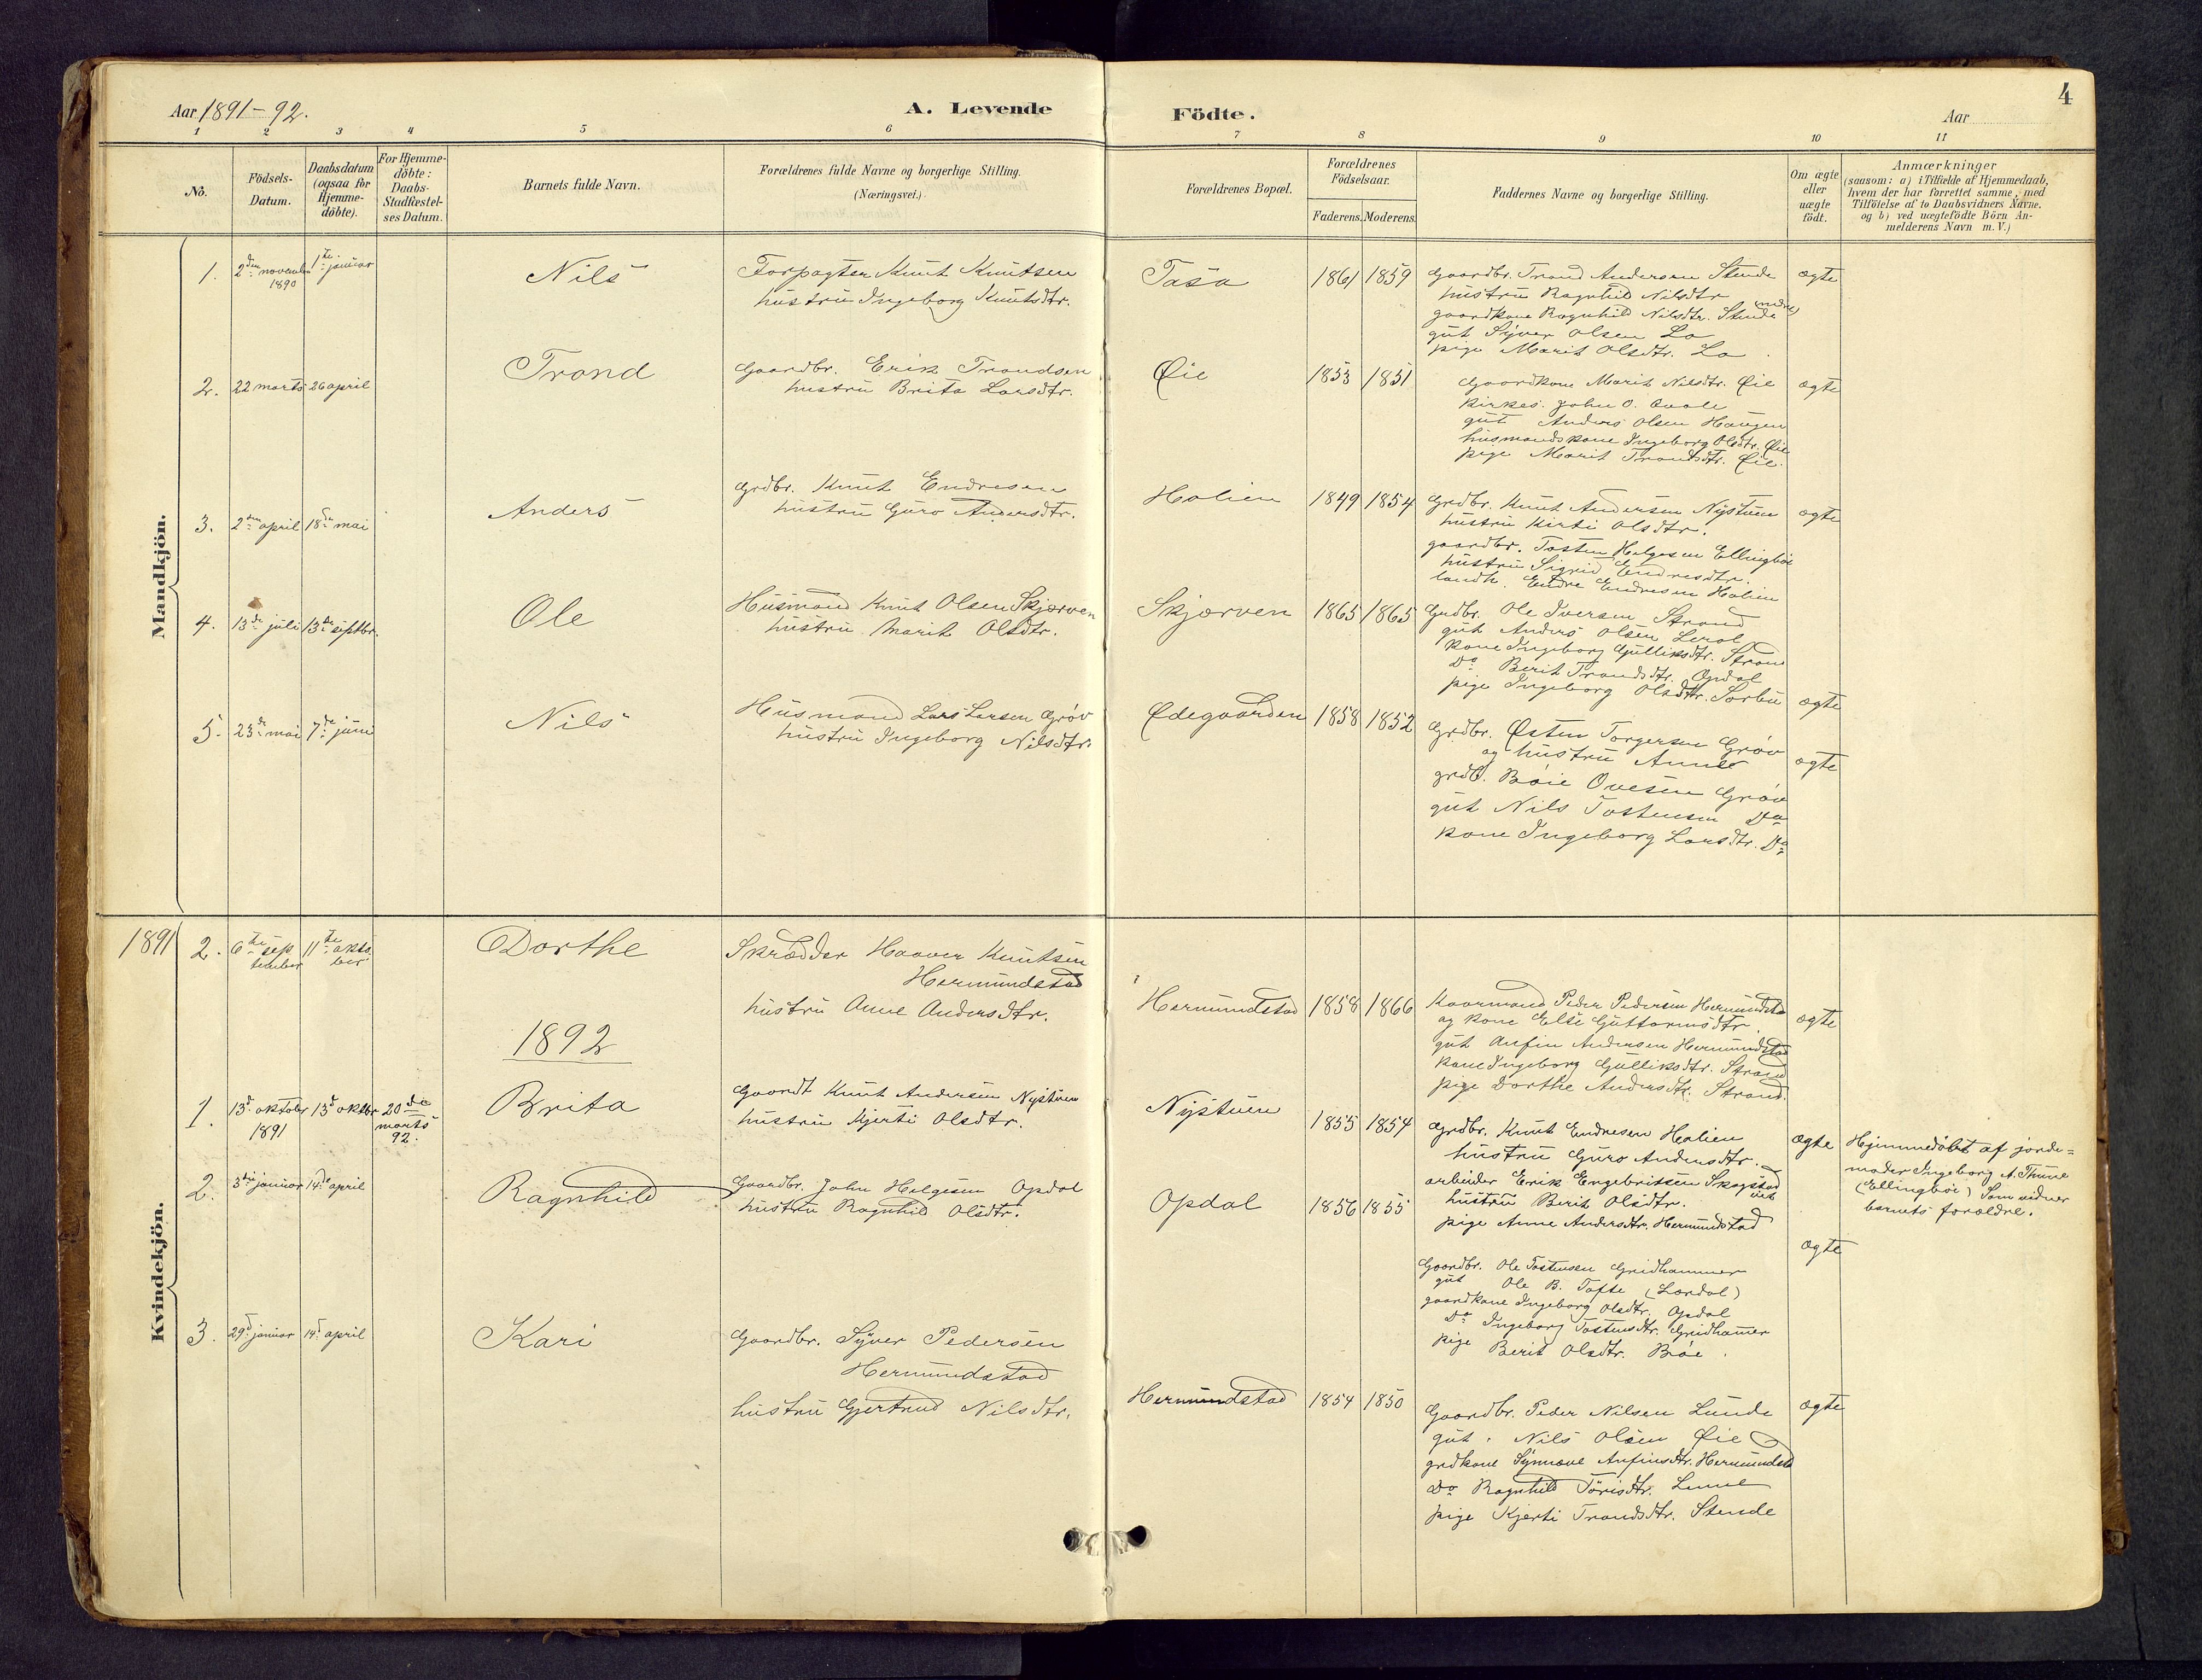 Aar 1891-92.
A. Levende
Födte.
Aar
4
1 2 3 4 5 6 7 8 9 10 11
No.
Födsels-
Datum.
Daabsdatum
(ogsaa for
Hjemme-
döbte).
For Hjemme-
döbte:
Daabs-
Stadfæstel-
ses Datum.
Barnets fulde Navn.
Forældrenes fulde Navne og borgerlige Stilling.
(Næringsvei.)
Forældrenes Bopæl.
Forældrenes
Födselsaar.
Faderens. Moderens.
Faddernes Navne og borgerlige Stilling.
Om ægte
eller
uægte
födt.
Anmærkninger
(saasom: a) i Tilfælde af Hjemmedaab,
hvem der har forrettet samme, med
Tilföielse af to Daabsvidners Navne,
og b) ved uægtefödte Börn An-
melderens Navn m. V.)
Mandkjön.
1. 2den november 1ste januar
1890
Nils
Forpagter Knut Knutsen
hustru Ingeborg Knutsdtr.
Tasa
1861 1859
Gaardbr. Trond Andersen Stende
hustru Ragnhild Nilsdtr
gaardkone Ragnhild Nilsdtr. Stende (nedre)
gut Syver Olsen Lo
pige Marit Olsdtr. Lo
ægte
2. 22 marts 26 april
Trond
Gaardbr. Erik Trondsen
hustru Brita Larsdtr.
Øie
1853 1851
Gaardkone Marit Nilsdtr. Øie
kirkes. John O. Kvale
gut Anders Olsen Haugen
husmandskone Ingeborg Olsdtr. Øie
pige Marit Trondsdtr. Øie.
ægte
3. 2den april 18de mai
Anders
Grdbr. Knut Endresen
hustru Guro Andersdtr.
Holien
1849 1854
Grdbr. Knut Andersen Nystuen
hustru Kirti Olsdtr.
gaardbr. Tosten Helgesen Ellingbøe
hustru Sigrid Endresdtr.
landh. Endre Endresen Holien
ægte
4. 13de juli 13de septbr.
Ole
Husmand Knut Olsen Skjærven
hustru Marit Olsdtr.
Skjærven
1865 1865
Grdbr. Ole Iversen Strand
gut Anders Olsen Lerol
kone Ingeborg Gulliksdtr. Stron
Do Berit Trondsdtr. Opdal
pige Ingeborg Olsdtr. Sorbu
ægte
5. 23de mai 7de juni
Nils
Husmand Lars Larsen Grøv
hustru Ingeborg Nilsdtr.
Ødegaarden
1858 1852
Grdbr. Østen Torgersen Grøv
og hustru Anne
grdb. Bøie Ovesen Grøv
gut Nils Tostensen Do
kone Ingeborg Larsdtr. Do
ægte
Kvindekjön.
1891 2. 6te sep 11te okto
tember ber
Dorthe
Skrædder Haaver Knutsen
Hermundstad
hustru Anne Andersdtr.
Hermundstad
1858 1866
Kaarmand Peder Pedersen Hermundsta
og kone Else Guttormsdtr.
gut Anfin Andersen Hermundstad
kone Ingeborg Gulliksdtr. Strand
pige Dorthe Andersdtr. Strand.
ægte
1892
1. 13d oktober 13d oktbr 20de
1891 marts
92.
Brita
Gaardt Knut Andersen Nystuen
hustru Kjerti Olsdtr.
Nystuen
1855 1854
Grdbr. Knut Endresen Holien
hustru Guro Andersdtr.
arbeider Erik Engebritsen Skogstad
hustru Berit Olsdtr.
pige Anne Andersdtr. Hermundstad
ægte
Hjemmedøbt af jorde-
moder Ingeborg A. Thune
(Ellingbøe) Som vidner
barnets forældre.
2. 3die januar 14de april
Ragnhild
Gaardbr. John Helgesen Opdal
hustru Ragnhild Olsdtr.
Opdal
1856 1855
Gaardbr. Ole Tostensen Gridhammer
gut Ole B. Tofte (Lærdal)
gaardkone Ingeborg Olsdtr. Opdal
Do Ingeborg Tostensdtr. Gridhamer
pige Berit Olsdtr. Bøe.
ægte
3. 29d januar 14d april
Kari
Gaardbr. Syver Pedersen
Hermundstad
hustru Gjertrud Nilsdtr.
Hermundstad
1854 1850
Gaardbr. Peder Nilsen Lunde
gut. Nils Olsen Øie
grdkone Synnøve Anfinsdtr. Hermundsta
Do Ragnhild Törisdtr. Lunne
pige Kjerti Trondsdtr. Stende
ægte